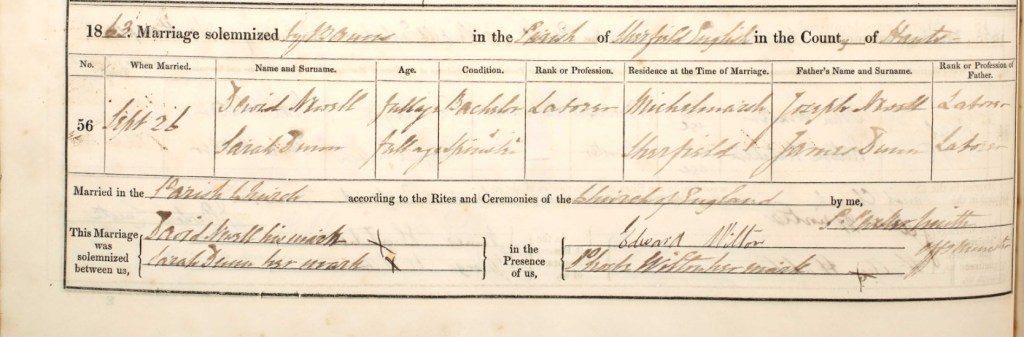 1863. Marriage solemnized by Banns in the Parish of Sherfield English in the County of Hants
No. When Married. Name and Surname. Age. Condition. Rank or Profession. Residence at the Time of Marriage. Father's Name and Surname. Rank or Profession of Father.
56 Sept 26 David Newell full age Bachelor Laborer Michelmarsh Joseph Newell Laborer
Sarah Dunn full age Spinster Sherfield James Dunn Laborer
Married in the Parish Church according to the Rites and Ceremonies of the Church of England by me,
This Marriage was solemnized between us, David Newell his mark X in the Presence of us, Edward Wilton
Sarah Dunn her mark X Phoebe Wilton her mark X